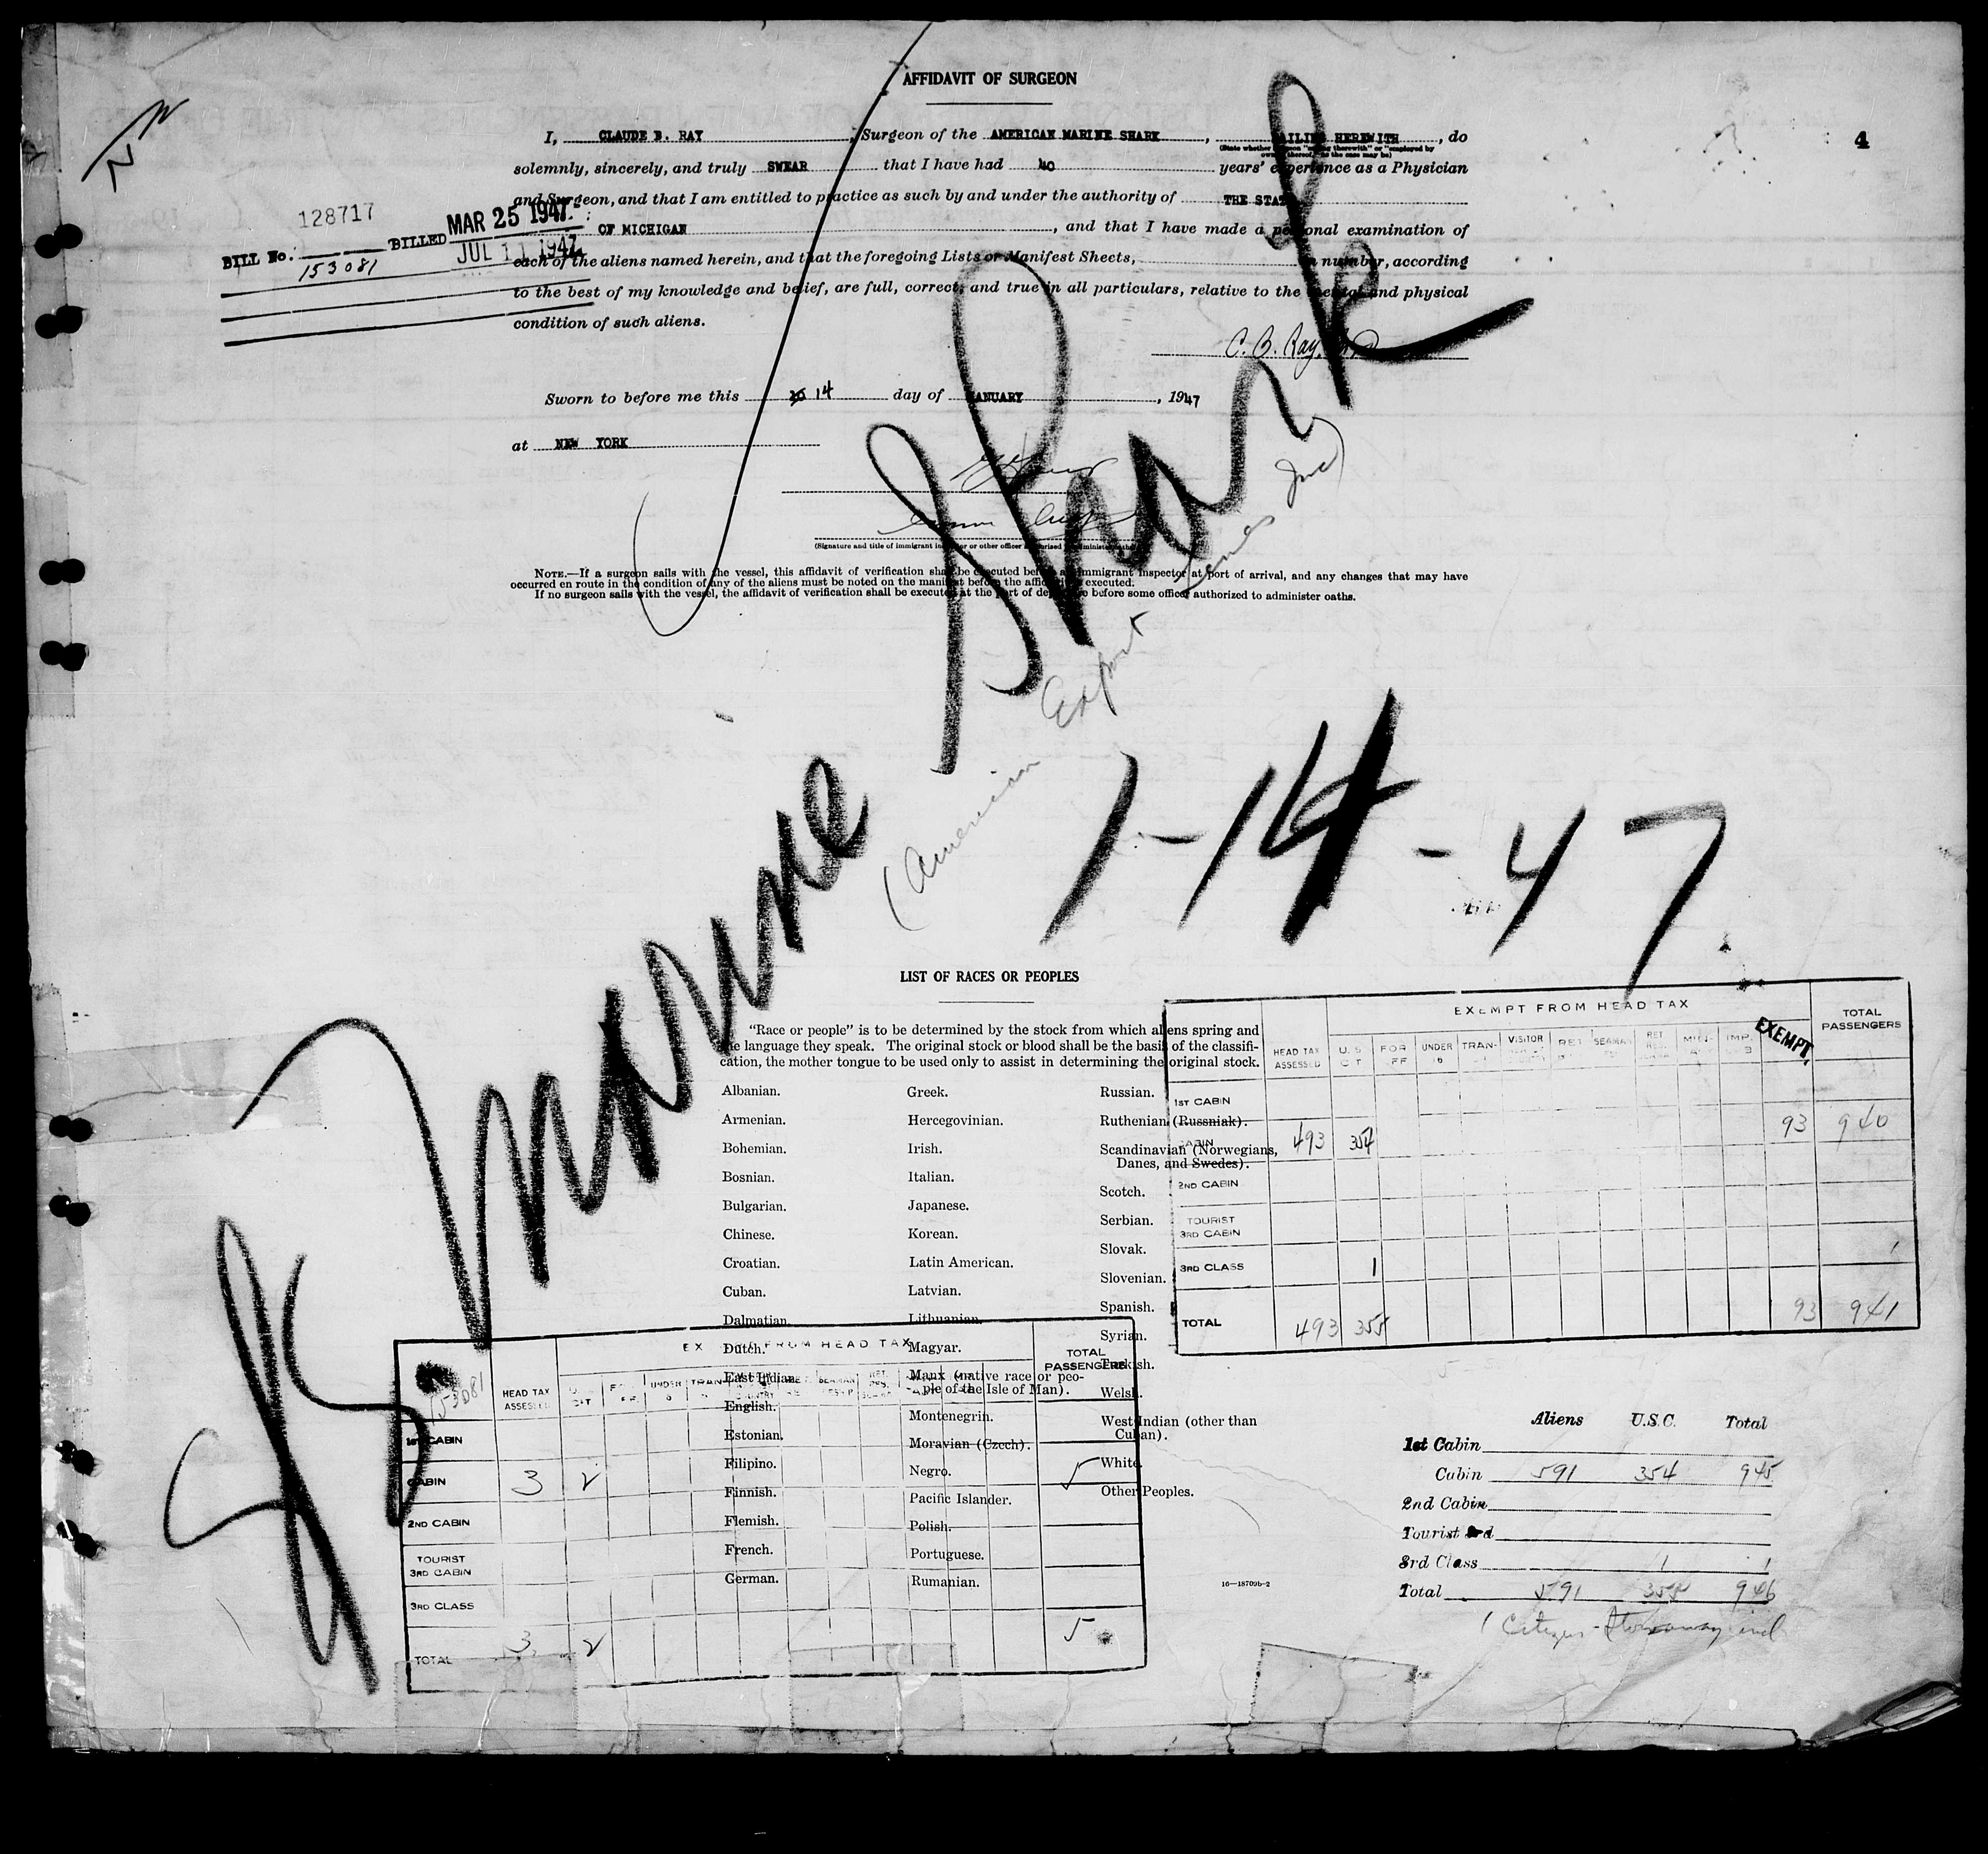 AFFIDAVIT OF SURGEON
4
I, CLAUDE B. RAY, Surgeon of the AMERICAN MARINE SHARK, SAILING HEREWITH, do
(State whether surgeon "sailing therewith" or "employed by owners thereof," as the case may be)
solemnly, sincerely, and truly SWEAR that I have had 40 years' experience as a Physician
and Surgeon, and that I am entitled to practice as such by and under the authority of THE STATE
OF MICHIGAN, and that I have made a personal examination of
each of the aliens named herein, and that the foregoing Lists or Manifest Sheets, in number, according
to the best of my knowledge and belief, are full, correct, and true in all particulars, relative to the mental and physical
condition of such aliens.
C. B. Ray, MD
128717
BILL No. BILLED MAR 25 1947
153081 JUL 11 1947
Sworn to before me this 14 day of JANUARY, 1947
at NEW YORK
(Signature and title of immigrant inspector or other officer authorized to administer oaths)
NOTE.—If a surgeon sails with the vessel, this affidavit of verification shall be executed before an immigrant inspector at port of arrival, and any changes that may have
occurred en route in the condition of any of the aliens must be noted on the manifest before the affidavit is executed.
If no surgeon sails with the vessel, the affidavit of verification shall be executed at the port of departure before some officer authorized to administer oaths.
SS Marine Shark
(American Export Lines Inc)
1-14-47
LIST OF RACES OR PEOPLES
"Race or people" is to be determined by the stock from which aliens spring and
the language they speak. The original stock or blood shall be the basis of the classifi-
cation, the mother tongue to be used only to assist in determining the original stock.
Albanian.
Armenian.
Bohemian.
Bosnian.
Bulgarian.
Chinese.
Croatian.
Cuban.
Dalmatian.
Dutch.
East Indian.
English.
Estonian.
Filipino.
Finnish.
Flemish.
French.
German.
Greek.
Hercegovinian.
Irish.
Italian.
Japanese.
Korean.
Latin American.
Latvian.
Lithuanian.
Magyar.
Manx (native race or peo-
ple of the Isle of Man).
Montenegrin.
Moravian (Czech).
Negro.
Pacific Islander.
Polish.
Portuguese.
Rumanian.
Russian.
Ruthenian (Russniak).
Scandinavian (Norwegians,
Danes, and Swedes).
Scotch.
Serbian.
Slovak.
Slovenian.
Spanish.
Syrian.
Turkish.
Welsh.
West Indian (other than
Cuban).
White.
Other Peoples.
16—18709b-2
EXEMPT FROM HEAD TAX
TOTAL PASSENGERS
HEAD TAX ASSESSED U.S. CIT FOR OFF UNDER 16 TRAN- VISITOR RET SEAMAN EXEMPT
1ST CABIN
CABIN 493 354 93 940
2ND CABIN
TOURIST
3RD CABIN
3RD CLASS 1 1
TOTAL 493 355 93 941
EX FROM HEAD TAX
TOTAL PASSENGERS
153081
HEAD TAX ASSESSED CIT UNDER TRAN
1ST CABIN
CABIN 3 2 5
2ND CABIN
TOURIST
3RD CABIN
3RD CLASS
TOTAL 3 2 5
Aliens U.S.C. Total
1st Cabin
Cabin 591 354 945
2nd Cabin
Tourist 3rd
3rd Class 1 1
Total 591 355 946
1 Citizen-Stowaway incl